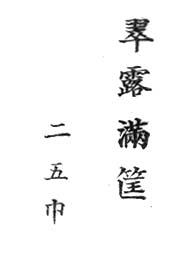 翠露滿筐
二五巾